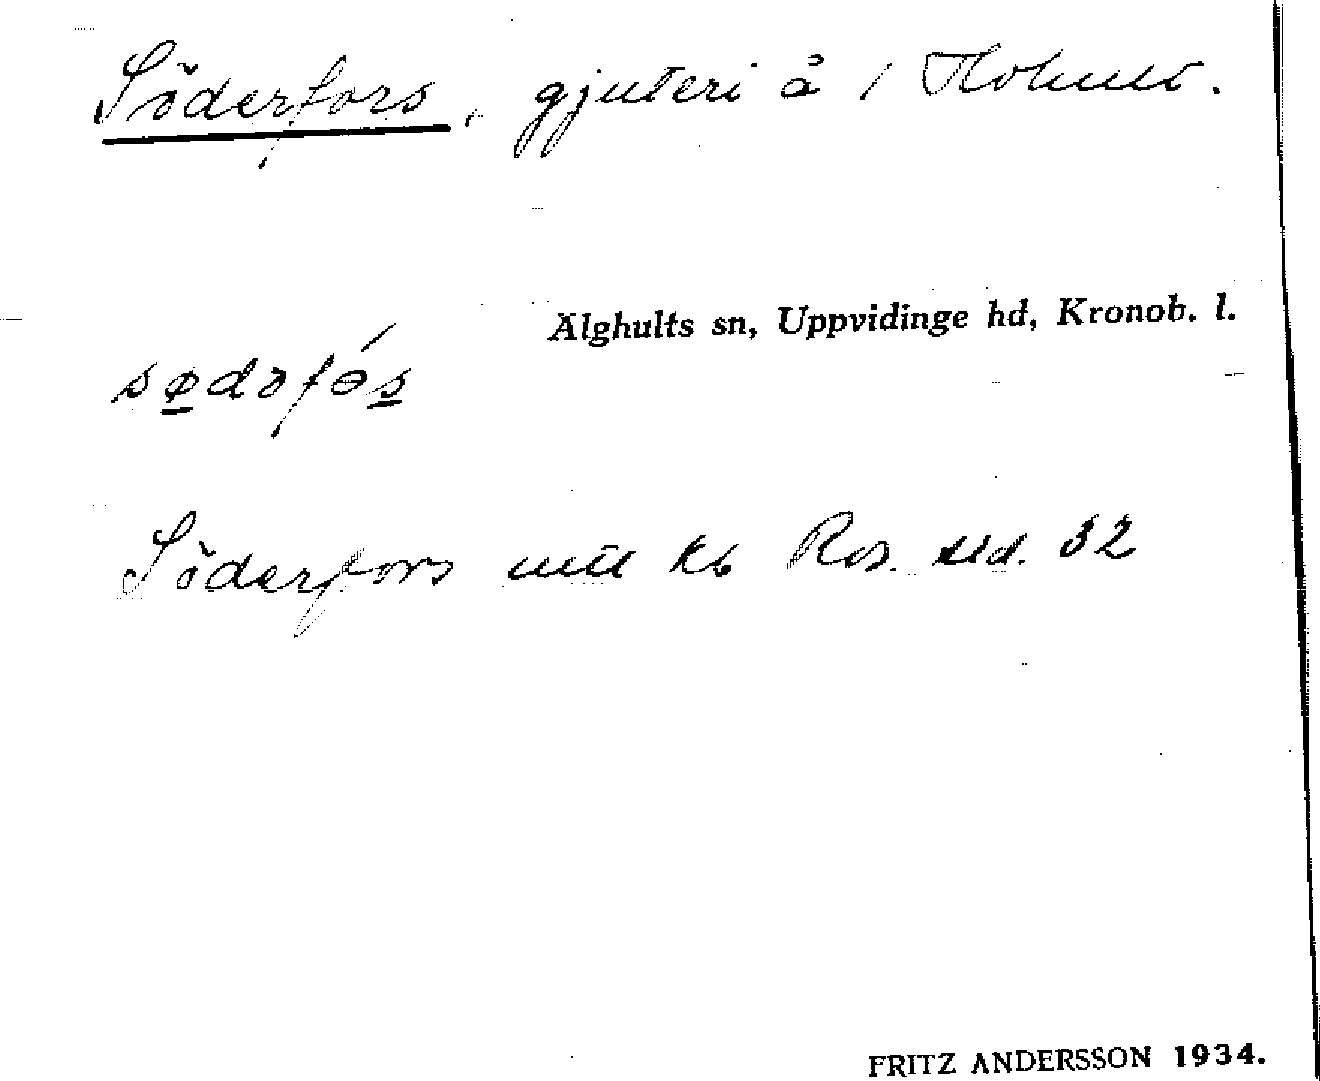 Söderfors, gjuteri å 1 Hohult.
Älghults sn, Uppvidinge hd, Kronob. l.
sødəfós
Söderfors kb Ros. sid. 32
FRITZ ANDERSSON 1934.